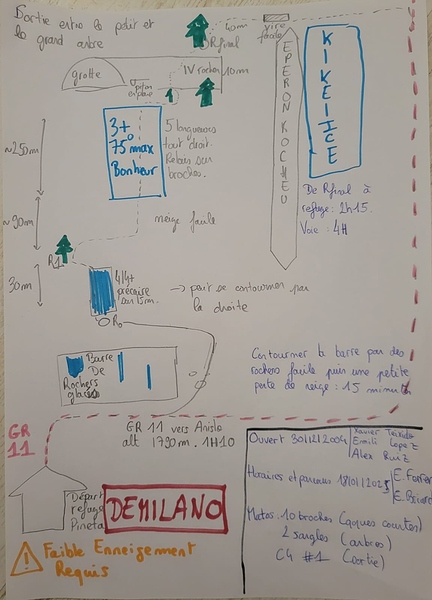 Sortie entre le petit et
le grand arbre
40m
vire
facile
R final
IV rocher 10m
grotte
piton
en place
EPERON ROCHEU
KIKEIICE
3+
75° max
Bonheur
5 longueurs
tout droit.
Relais sur
broches.
~250m
De Rfinal à
refuge: 2h15.
Voie: 4H
~90m
neige facile
R1
30m
4/4+
précaire
sur 15m.
→ peut se contourner par
la droite
R0
Barre
De
Rochers
glacés
Contourner la barre par des
rochers facile puis une petite
pente de neige: 15 minutes
GR
11
GR 11 vers Anisle
alt 1790m. 1H10
Départ
refuge
Pineta
DEMILANO
Faible Enneigement
Requis
Ouvert 30/12/2004
Xavier Teixido
Emili Lopez
Alex Ruiz
Horaires et parcours 18/01/2025
E. Ferrer
Matos: 10 broches (qques courtes)
2 sangles (arbres)
C4 #1 (sortie)